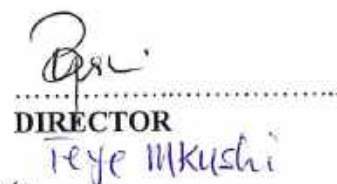 DIRECTOR
Teye Mkushi